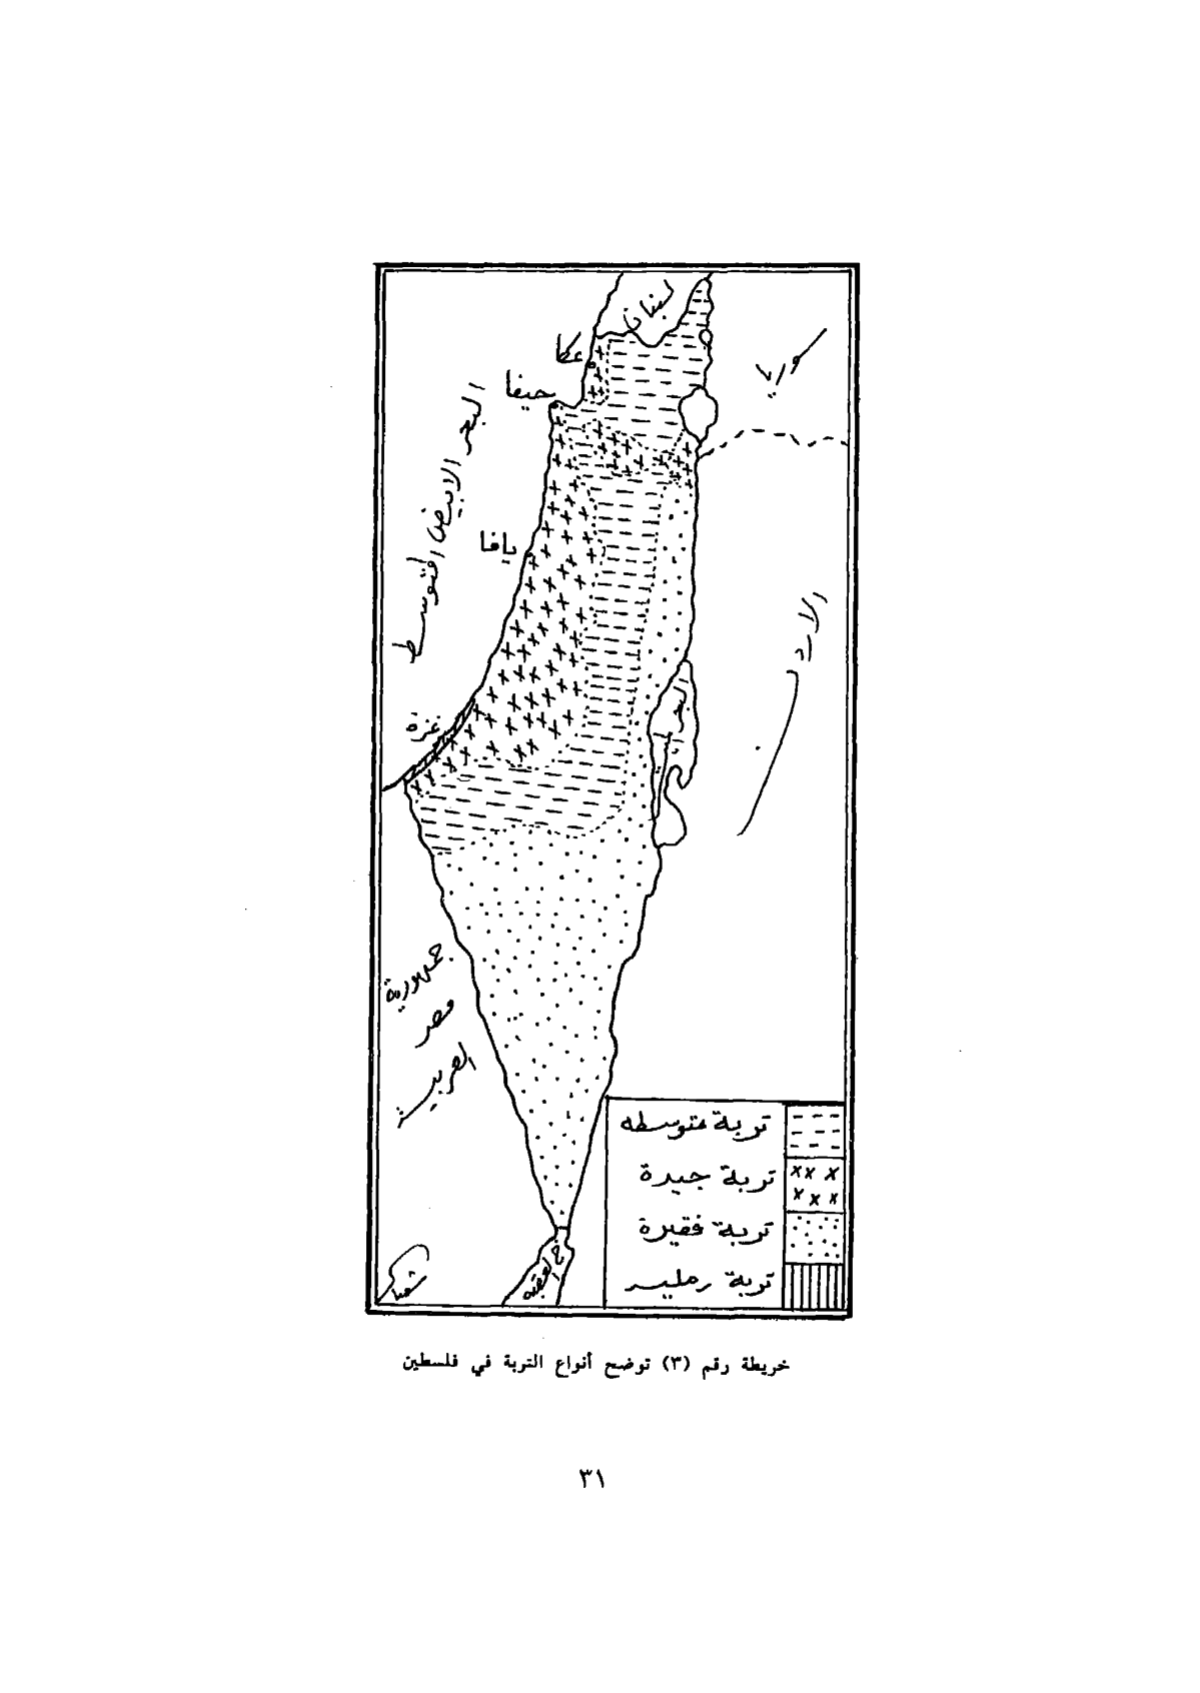 لبنان
عكا
حيفا
سوريا
البحر الابيض المتوسط
يافا
الاردن
غزة
جمهورية
مصر
العربية
تربة متوسطه
تربة جيدة
تربة فقيرة
تربة رمليه
خ العقبه
خريطة رقم (٣) توضح أنواع التربة في فلسطين
٣١